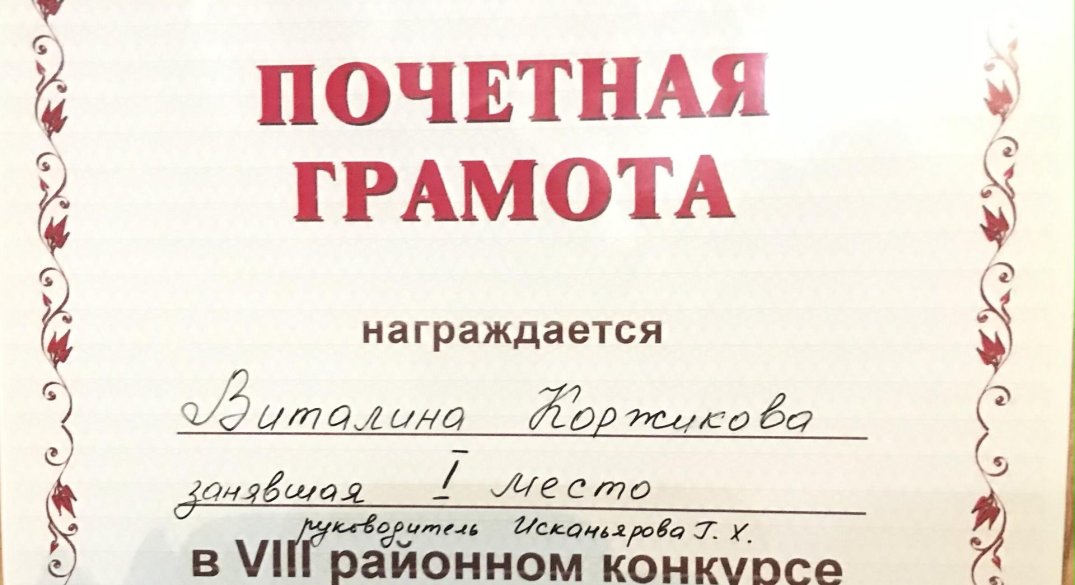 ПОЧЕТНАЯ
ГРАМОТА
награждается
Виталина Коржикова
занявшая I место
руководитель Исканьярова Г. Х.
в VIII районном конкурсе